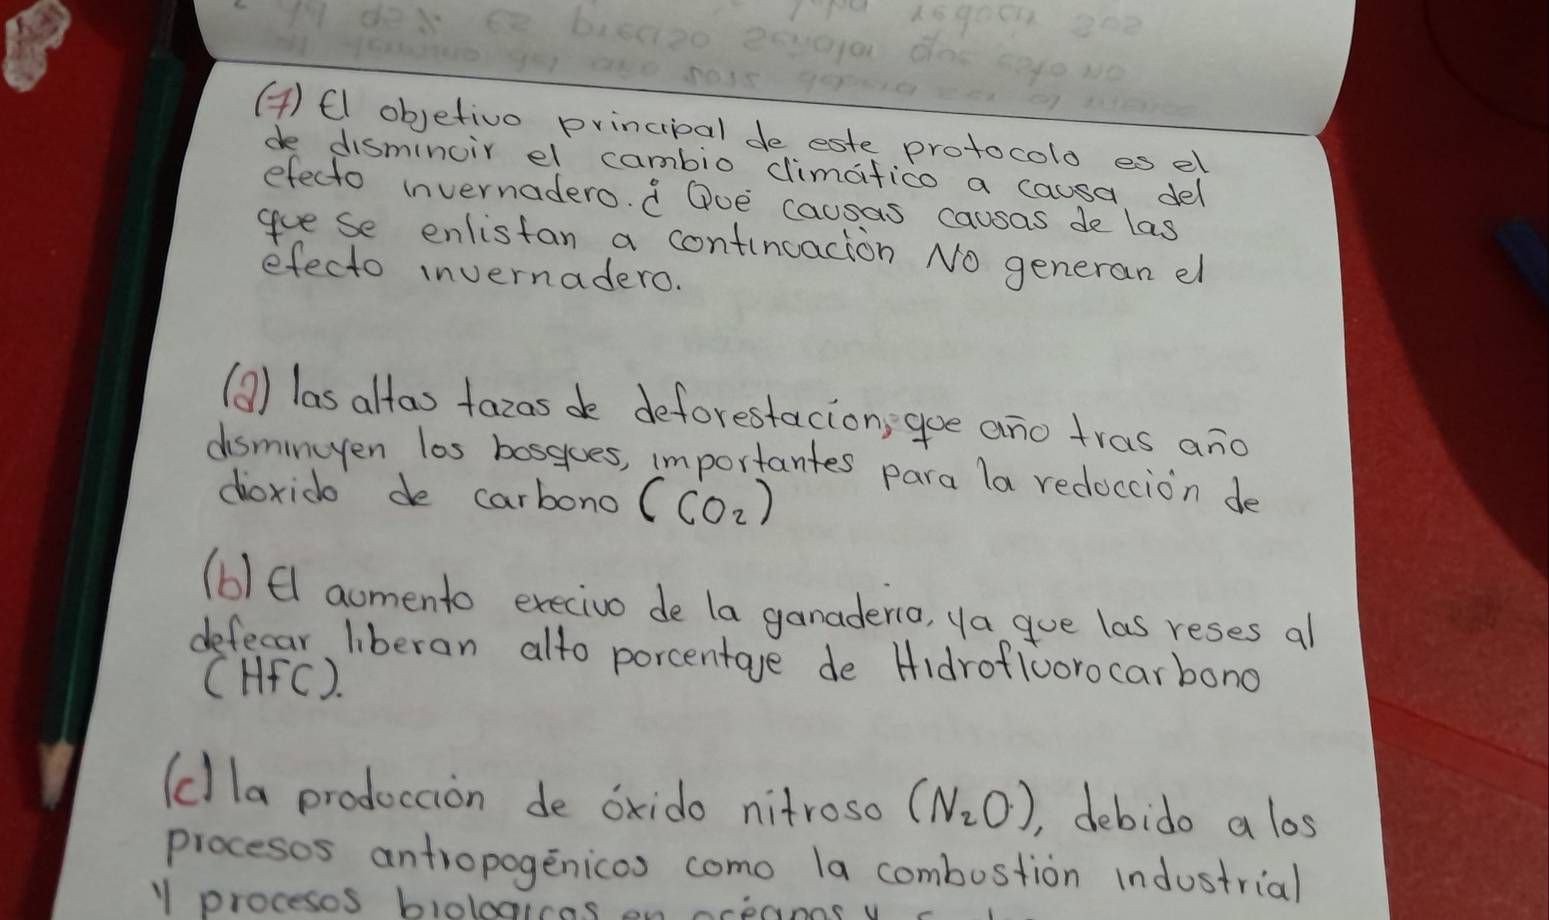 (7) El objetivo principal de este protocolo es el
de disminuir el cambio climático a causa del
efecto invernadero. ¿ Qué causas causas de las
que se enlistan a continuación NO generan el
efecto invernadero.
(a) las altas tazas de deforestacion, que año tras año
disminuyen los bosques, importantes para la reducción de
dioxido de carbono (CO₂)
(b) El aumento execivo de la ganaderia, ya que las reses al
defecar liberan alto porcentaje de Hidrofluorocarbono
(HFC).
(c) la producción de óxido nitroso (N₂O), debido a los
procesos antropogénicos como la combustión industrial
y procesos biologicos en océanos y